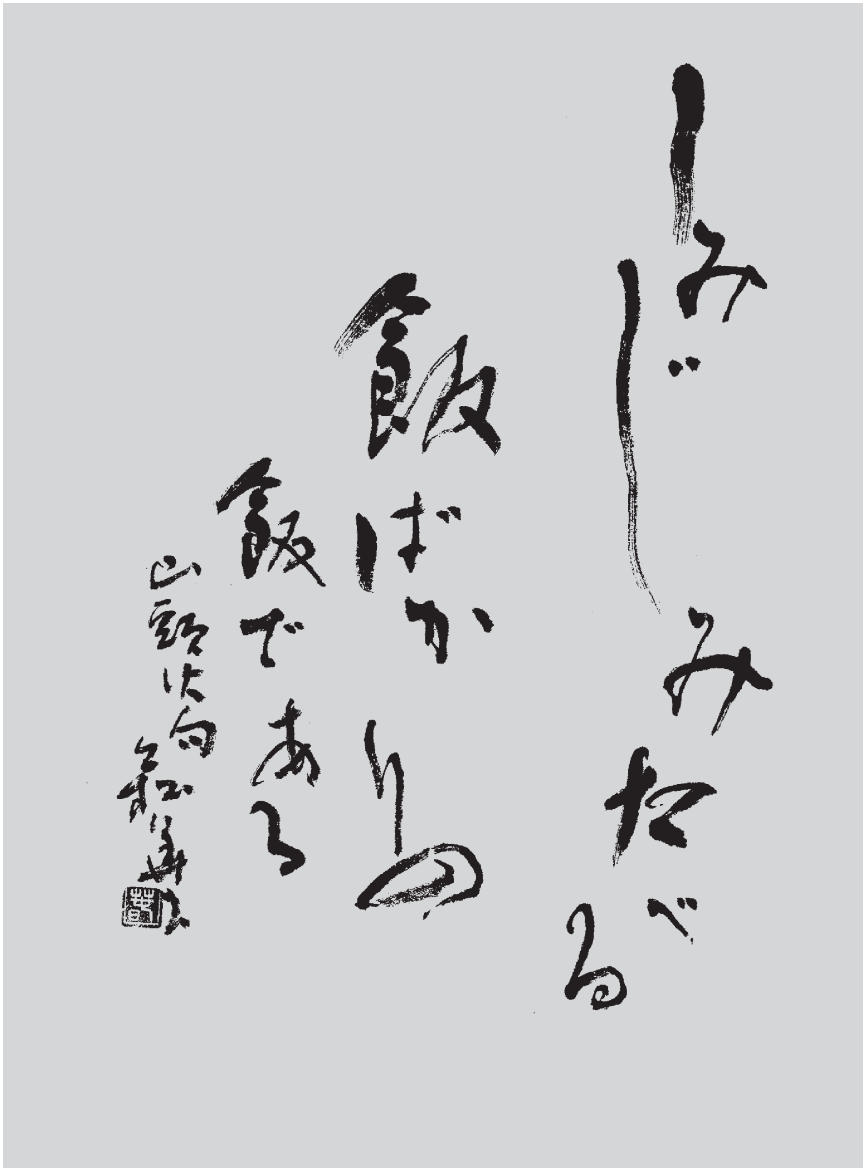 しみじみたべる
飯ばかりの
飯である
山頭火句